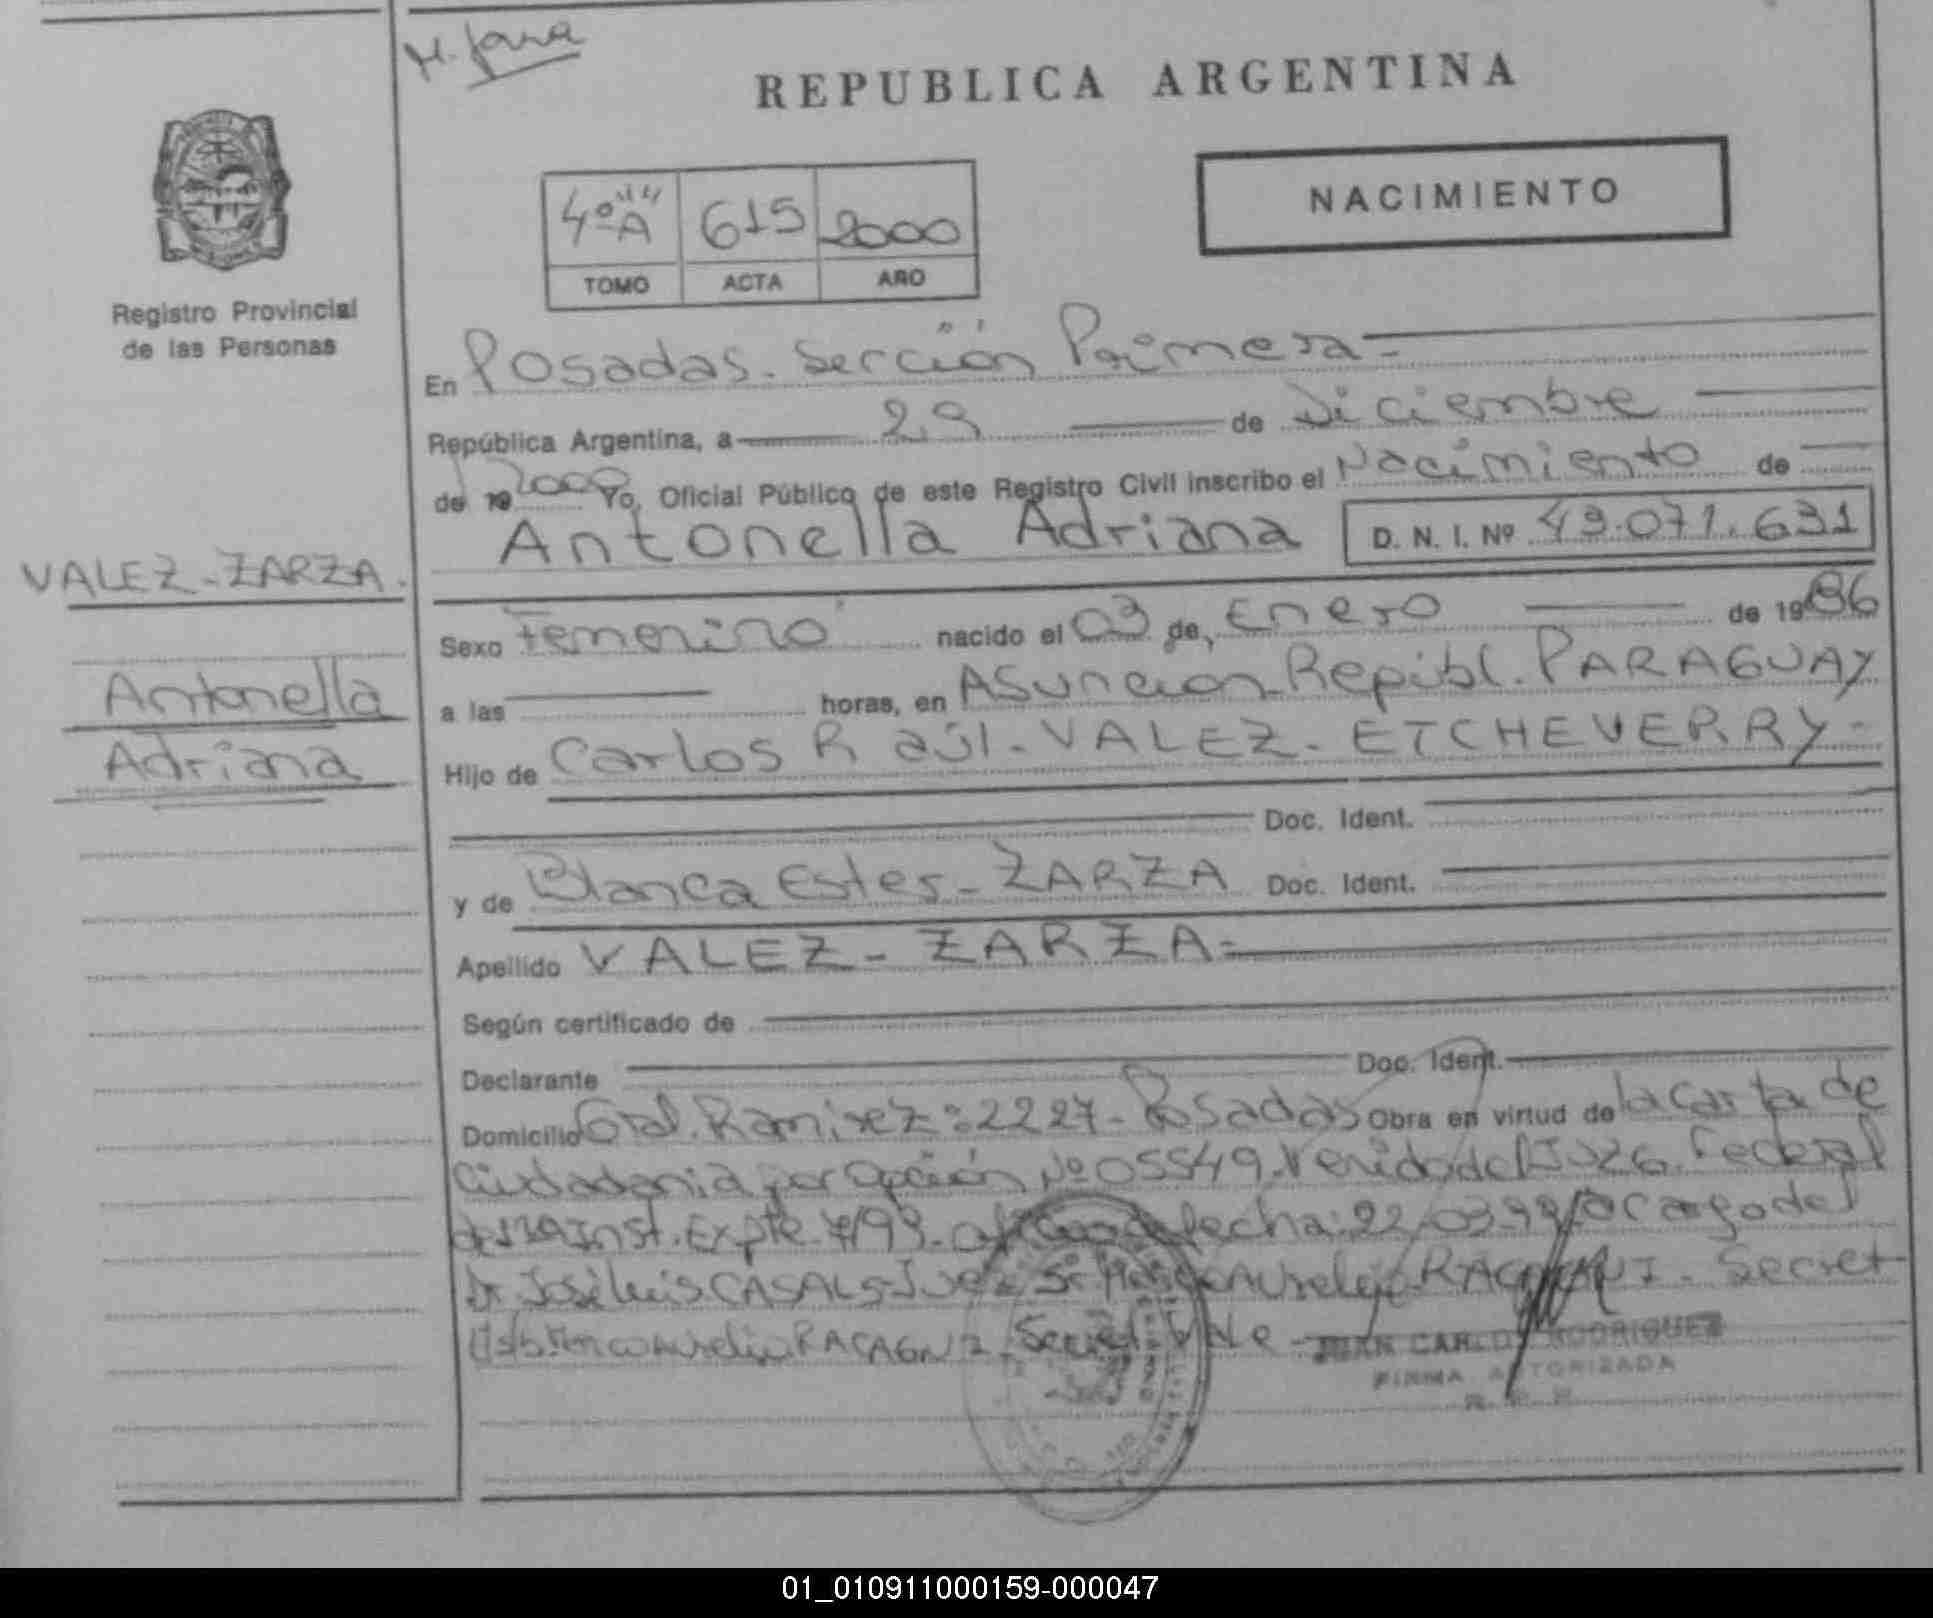 M. Jara
REPUBLICA ARGENTINA
NACIMIENTO
4º "A" 615 2000
TOMO ACTA AÑO
Registro Provincial
de las Personas
En Posadas. Sección Primera
República Argentina, a 29 de Diciembre
de 19 2000 Yo, Oficial Público de este Registro Civil inscribo el Nacimiento de
Antonella Adriana D. N. I. Nº 49.071.631
VALEZ-ZARZA.
Antonella
Adriana
Sexo Femenino nacido el 03 de, Enero de 1986
a las horas, en Asunción Repúbl. PARAGUAY
Hijo de Carlos Raúl-VALEZ-ETCHEVERRY-
Doc. Ident.
y de Blanca Ester-ZARZA Doc. Ident.
Apellido VALEZ-ZARZA=
Según certificado de
Declarante Doc. Ident.
Domicilio Gral. Ramirez: 2227-Posadas Obra en virtud de la Carta de
Ciudadanía por Opción Nº 05549. Venido del JUZG. Federal
Inst. Expte. 7/93 fecha: 22 a cargo del
Dr. José Luis CASALS-JUEZ Secret
RACAGNI Secret Vale
JUAN CARLOS RODRIGUEZ
FIRMA AUTORIZADA
01_010911000159-000047